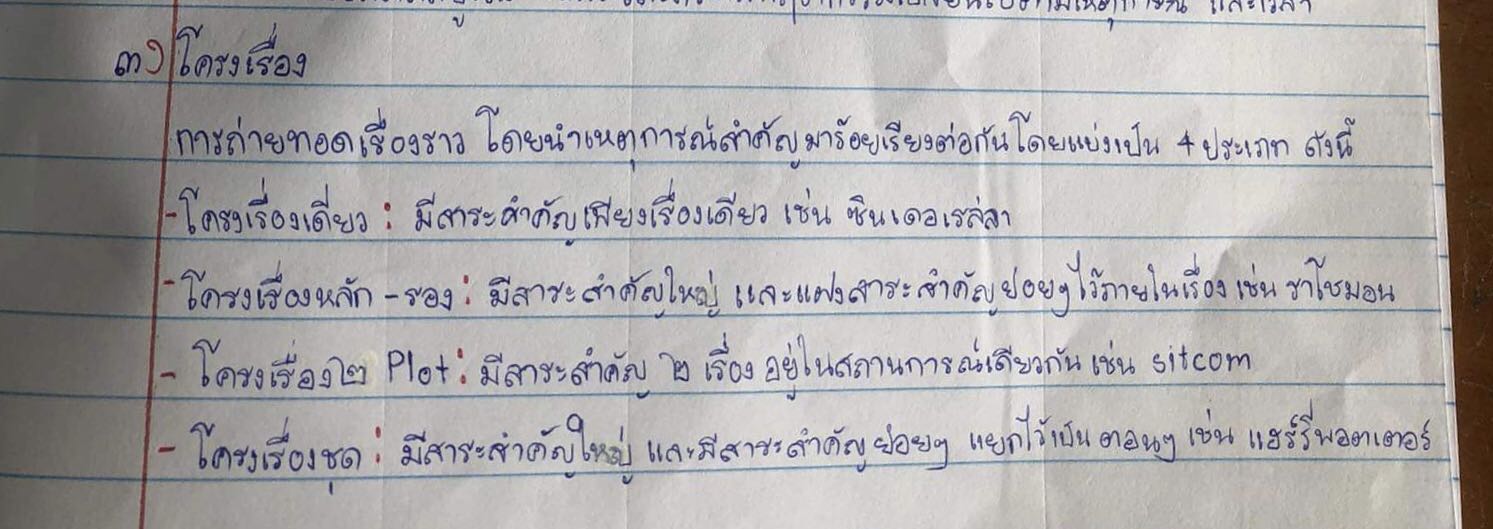 และเวลา
๓) โครงเรื่อง
การถ่ายทอดเรื่องราว โดยนำเหตุการณ์สำคัญมาร้อยเรียงต่อกันโดยแบ่งเป็น 4 ประเภท ดังนี้
- โครงเรื่องเดี่ยว : มีสาระสำคัญเพียงเรื่องเดียว เช่น ซินเดอเรล่ลา
- โครงเรื่องหลัก - รอง : มีสาระสำคัญใหญ่ และแฝงสาระสำคัญย่อยๆ ไว้ภายในเรื่อง เช่น ราโชมอน
- โครงเรื่อง ๒ Plot : มีสาระสำคัญ ๒ เรื่อง อยู่ในสถานการณ์เดียวกัน เช่น sitcom
- โครงเรื่องชุด : มีสาระสำคัญใหญ่ และมีสาระสำคัญย่อยๆ แยกไว้เป็นตอนๆ เช่น แฮร์รี่พอตเตอร์